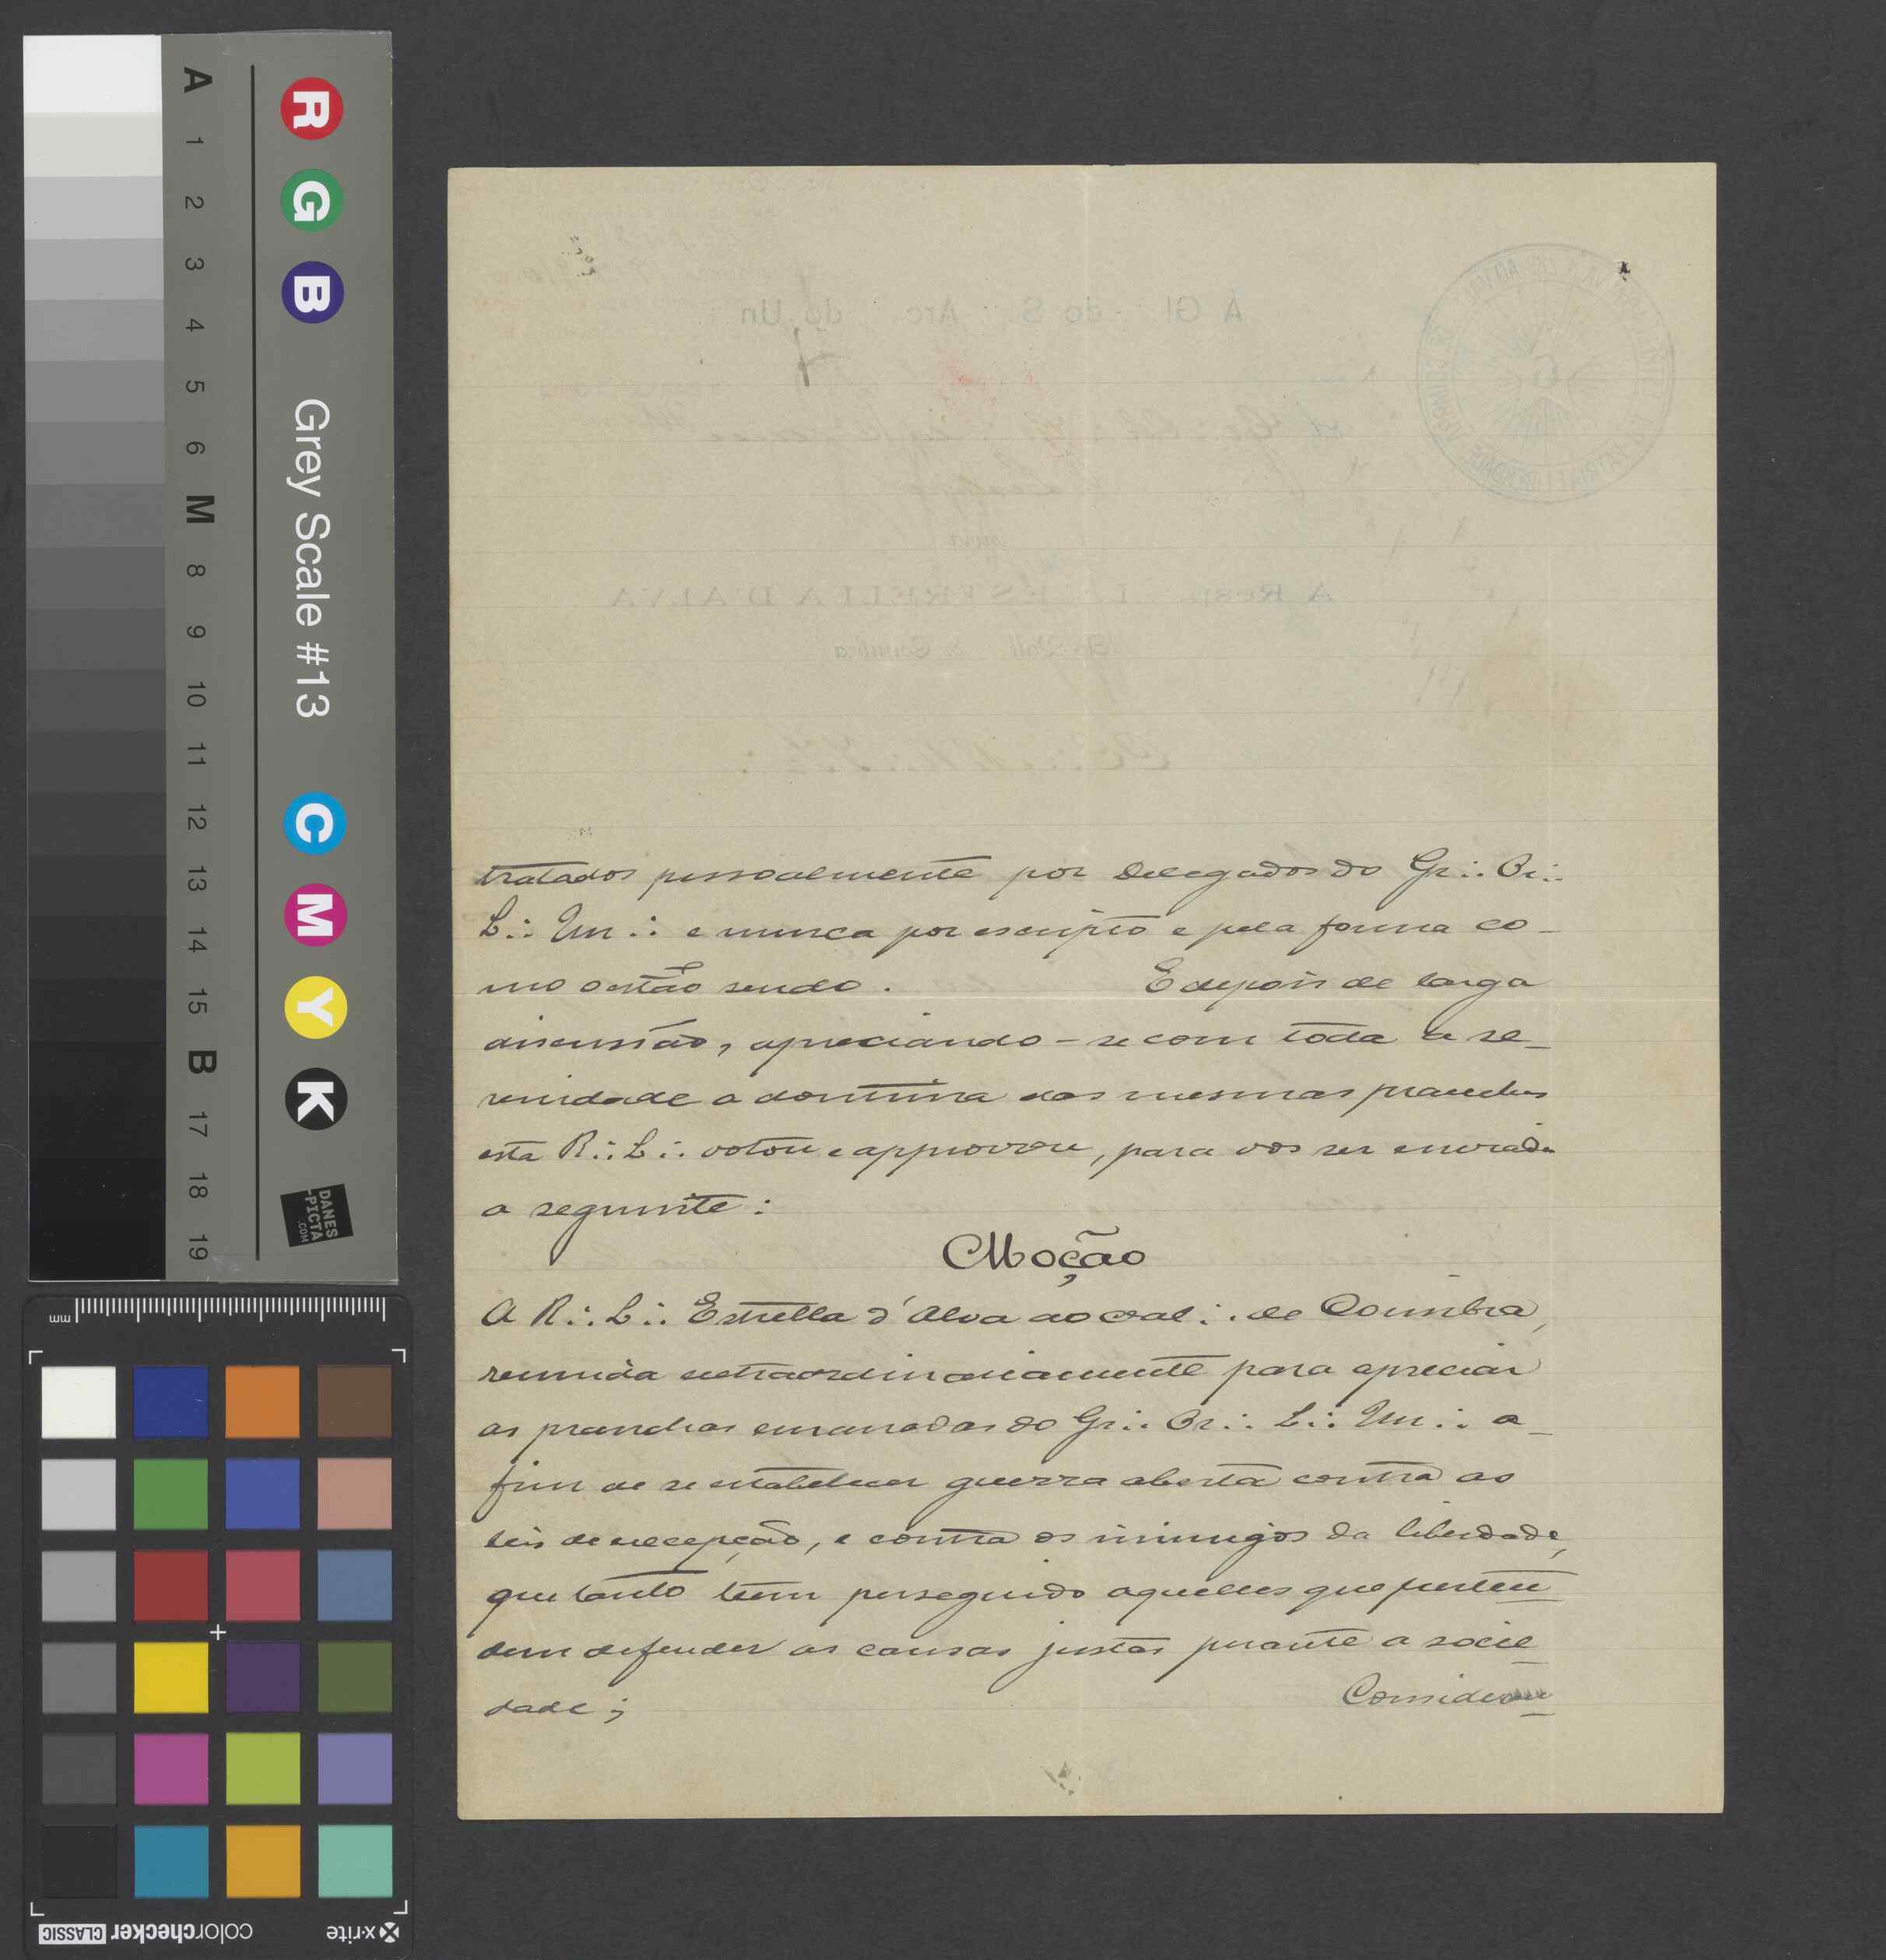 A
1
2
3
4
5
6
M
8
9
10
11
12
13
14
15
B
17
18
19
R G B Grey Scale #13 C M Y K
DANES
-PICTA
.COM
mm
colorchecker CLASSIC
x-rite
A Gl do S Arc do Un
G
A Resp L ESTRELLA D'ALVA
Coimbra
tratados pessoalmente por Delegados do Gr∴ Or∴
L∴ Un∴ e nunca por escripto e pela forma co-
mo o estão sendo. E depois de larga
discussão, apreciando-se com toda a se-
renidade a doutrina das mesmas pranchas
esta R∴ L∴ votou e approvou, para vos ser enviada
a seguinte:
Moção
A R∴ L∴ Estrella d'Alva ao val∴ de Coimbra,
reunida extraordinariamente para apreciar
as pranchas emanadas do Gr∴ Or∴ L∴ Un∴ a-
fim de se estabelecer guerra aberta contra as
leis de excepção, e contra os inimigos da liberdade,
que tanto teem perseguido aquelles que perten-
dem defender as causas justas perante a socie-
dade; Consideran-